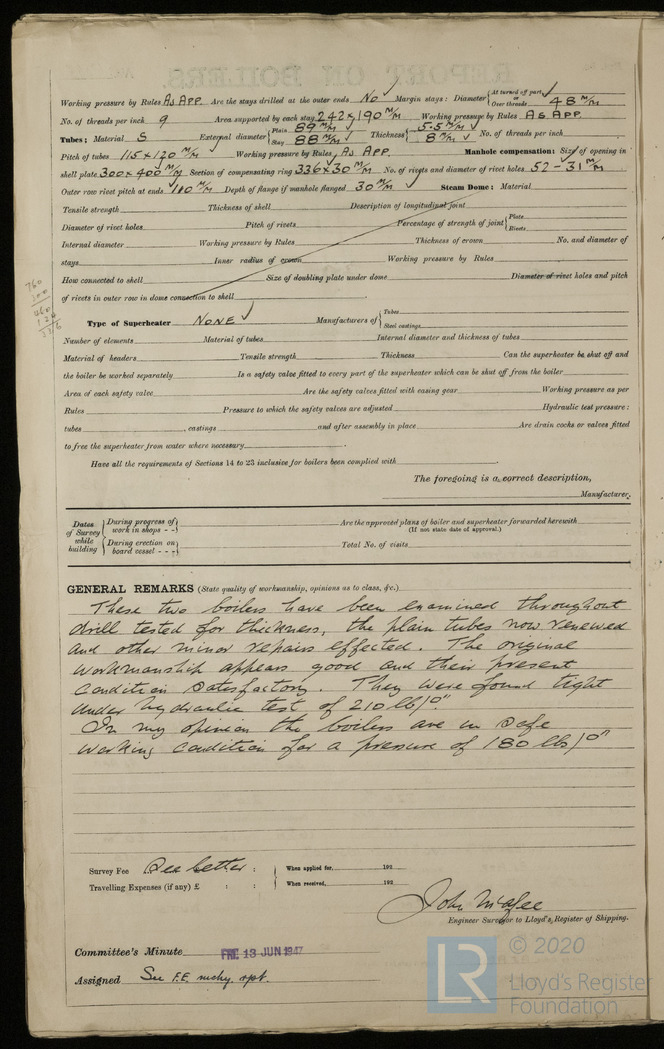 Working pressure by Rules As App. Are the stays drilled at the outer ends No Margin stays: Diameter { At turned off part, or Over threads 48 m/m
No. of threads per inch 9 Area supported by each stay 242 x 190 m/m Working pressure by Rules As App.
Tubes: Material S External diameter { Plain 89 m/m Stay 88 m/m Thickness { 5.5 m/m 8 m/m No. of threads per inch
Pitch of tubes 115 x 120 m/m Working pressure by Rules As App. Manhole compensation: Size of opening in
shell plate 300 x 400 m/m Section of compensating ring 336 x 30 m/m No. of rivets and diameter of rivet holes 52 - 31 m/m
Outer row rivet pitch at ends 110 m/m Depth of flange if manhole flanged 30 m/m Steam Dome: Material
Tensile strength Thickness of shell Description of longitudinal joint
Diameter of rivet holes Pitch of rivets Percentage of strength of joint { Plate Rivets
Internal diameter Working pressure by Rules Thickness of crown No. and diameter of
stays Inner radius of crown Working pressure by Rules
How connected to shell Size of doubling plate under dome Diameter of rivet holes and pitch
of rivets in outer row in dome connection to shell
Type of Superheater None Manufacturers of { Tubes Steel castings
Number of elements Material of tubes Internal diameter and thickness of tubes
Material of headers Tensile strength Thickness Can the superheater be shut off and
the boiler be worked separately Is a safety valve fitted to every part of the superheater which can be shut off from the boiler
Area of each safety valve Are the safety valves fitted with easing gear Working pressure as per
Rules Pressure to which the safety valves are adjusted Hydraulic test pressure:
tubes , castings and after assembly in place Are drain cocks or valves fitted
to free the superheater from water where necessary
Have all the requirements of Sections 14 to 23 inclusive for boilers been complied with
The foregoing is a correct description,
Manufacturer.
Dates of Survey while building { During progress of work in shops - - } Are the approved plans of boiler and superheater forwarded herewith
(If not state date of approval.)
{ During erection on board vessel - - - } Total No. of visits
GENERAL REMARKS (State quality of workmanship, opinions as to class, &c.)
These two boilers have been examined throughout
drill tested for thickness, the plain tubes now renewed
and other minor repairs effected. The original
workmanship appears good and their present
condition satisfactory. They were found tight
under hydraulic test of 210 lb/□"
In my opinion the boilers are in safe
working condition for a pressure of 180 lbs/□"
Survey Fee See letter : When applied for, 192
Travelling Expenses (if any) £ : : When received, 192
John McAfee
Engineer Surveyor to Lloyd's Register of Shipping.
Committee's Minute FRI. 13 JUN 1947
Assigned See F.E. mchy. rpt.
LR © 2020
Lloyd's Register
Foundation